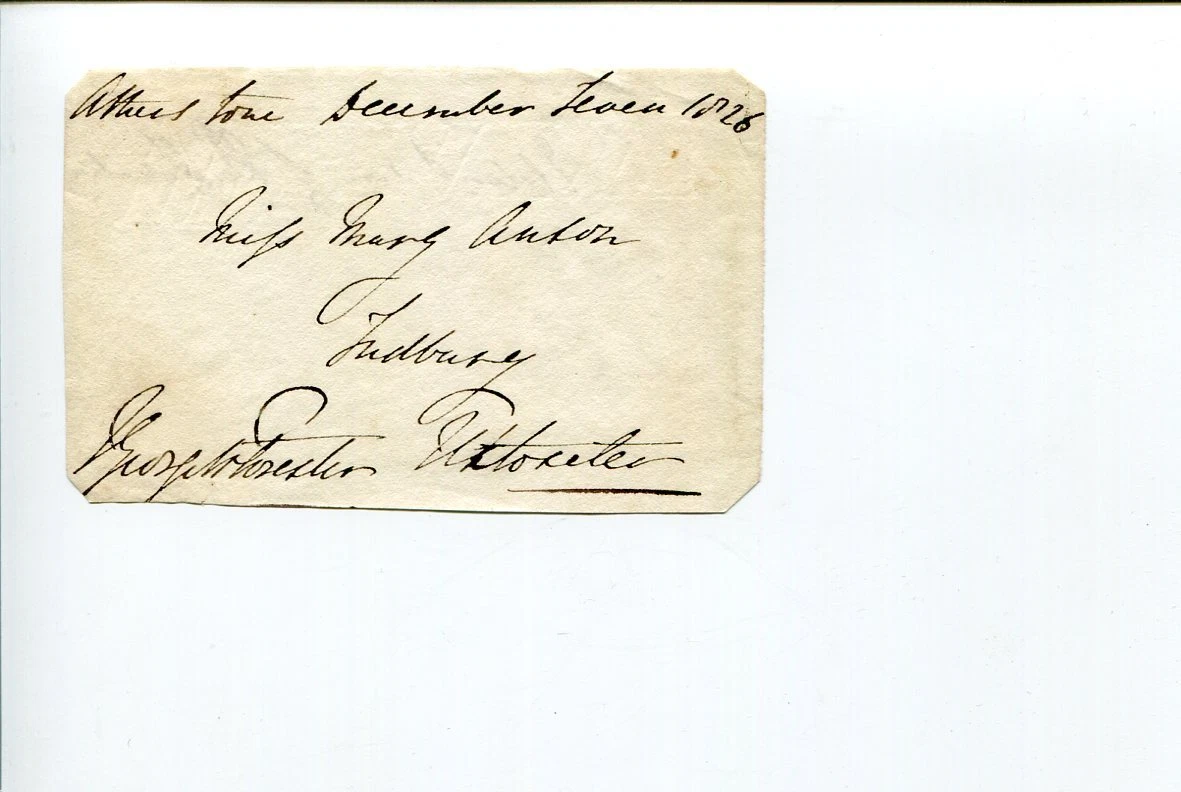 Atherstone December Seven 1826
Miss Mary Anton
Tudbury
George W Forester Uttoxeter